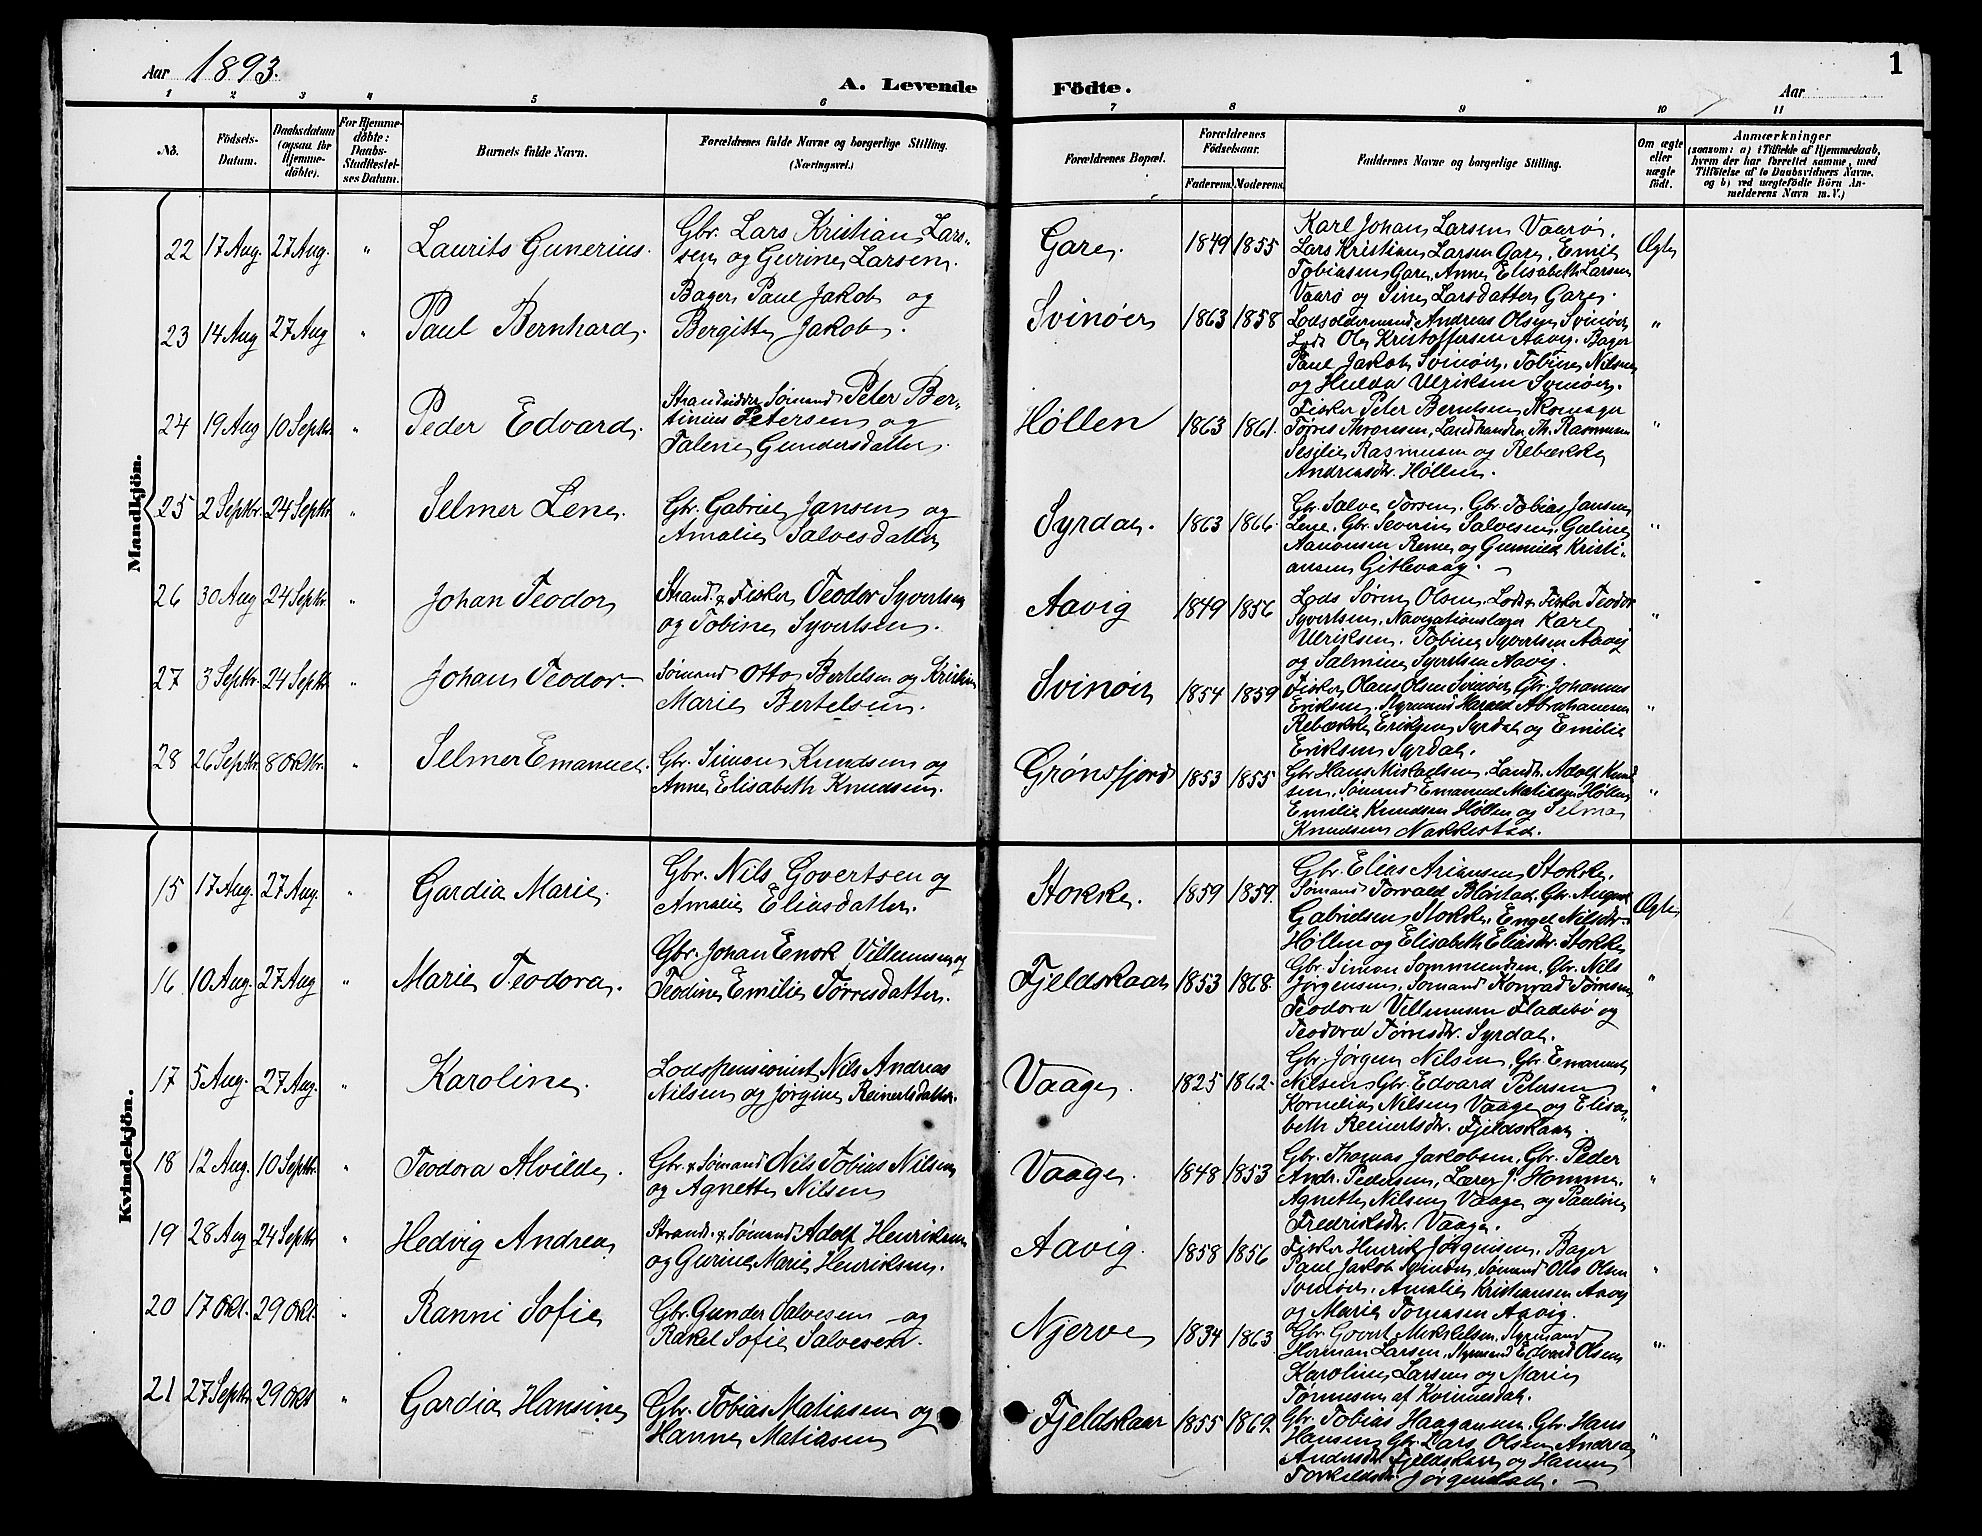 Aar 1893.
A. Levende Födte.
Aar
1
1 2 3 4 5 6 7 8 9 10 11
No.
Födsels-Datum.
Daabsdatum (ogsaa for Hjemmedöbte).
For Hjemmedöbte: Daabs-Stadfæstelses Datum.
Barnets fulde Navn.
Forældrenes fulde Navne og borgerlige Stilling.
(Næringsvei.)
Forældrenes Bopæl.
Forældrenes Födselsaar.
Faderens. Moderens.
Faddernes Navne og borgerlige Stilling.
Om ægte eller uægte födt.
Anmærkninger
(saasom: a) i Tilfælde af Hjemmedaab, hvem der har forrettet samme, med Tilföielse af to Daabsvidners Navne. og b) ved uægtefödte Börn Anmelderens Navn m.V.)
Mandkjön.
22 17 Aug. 27 Aug. " Laurits Gunerius. Gbr. Lars Kristian Lars-
sen og Gurine Larsen. Gare. 1849 1855 Karl Johan Larsen Vaarø.
Lars Kristian Larsen Gare, Emil
Tobiasen Gare, Anne Elisabeth Larsen
Vaarø og Sine Larsdatter Gare. Ægte
23 14 Aug 27 Aug " Paul Bernhard. Bager Paul Jakob og
Bergitte Jakob. Svinøer 1863 1858 Lodsoldermand Andreas Olsen Svinøer
Lods Ole Kristoffersen Aavig. Bager
Paul Jakob Svinøer. Tobine Nilsen
og Hulda Ulriksen Svinøer. "
24 19 Aug 10 Septbr. " Peder Edvard. Strandsidder Sømand Peter Ber-
tinius Petersen og
Talene Gundersdatter. Høllen 1863 1861. Fisker Peter Berntsen Skomager
Tørres Aronsen, Landhandler Th. Rasmusen
Sesilie Rasmusen og Rebække
Andreasdtr. Høllen. "
25 2 Septbr. 24 Septbr. " Selmer Lene. Gbr. Gabriel Jansen og
Amalie Salvesdatter Syrdal. 1863 1866. Gbr. Salve Torsen. Gbr. Tobias Jansen
Lene. Gbr. Severin Salvesen, Geline
Aanonsen Rême og Gunnild Kristi-
ansen Gitlevaag. "
26 30 Aug 24 Septbr " Johan Teodor Strand. & Fisker Teodor Syvertsen
og Tobine Syvertsen. Aavig 1849 1856 Lods Søren Olsen. Lods & Fisker Teodor
Syvertsen, Navigationslærer Karl
Ulriksen. Tobine Syvertsen Aavig
og Salmine Syvertsen Aavig. "
27 3 Septbr. 24 Septbr " Johan Teodor. Sømand Otto Bertelsen og Kristine
Marie Bertelsen. Svinøer 1854 1859 Fisker Olaus Olsen Svinøer, Gbr. Johannes
Eriksen. Styrmand Harald Abrahamsen
Rebække Eriksen Syrdal og Emilie
Eriksen Syrdal. "
28 26 Septbr. 8 Oktbr. " Selmer Emanuel. Gbr. Simon Knudsen og
Anne Elisabeth Knudsen. Grønsfjord 1853 1855 Gbr. Hans Mikaelsen. Landh. Adolf Knud-
sen, Sømand Emanuel Matiasen Høllen
Emilie Knudsen Høllen og Selma
Knudsen Nakkestad. "
Kvindekjön.
15 17 Aug. 27 Aug. " Gardia Marie. Gbr. Nils Govertsen og
Amalie Eliasdatter. Stokke. 1859 1859. Gbr. Elias Ariansen Stokke.
Sømand Torvald Blørstad. Gbr. August
Gabrielsen Stokke. Engel Nilsdtr.
Høllen og Elisabeth Eliasdtr. Stokke Ægte
16 10 Aug. 27 Aug " Marie Teodora. Gbr. Johan Enok Villumsen og
Teodine Emilie Tørresdatter. Fjeldskaar 1853 1868. Gbr. Simon Sommundsen, Gbr. Nils
Jørgensen, Sømand Konrad Tørresen
Teodora Villumsen Fladebø og
Teodora Tørresdtr. Syrdal. "
17 5 Aug. 27 Aug. " Karoline. Lodspensionist Nils Andreas
Nilsen og Jørgine Reinertsdatter. Vaage. 1825 1862. Gbr. Jørgen Nilsen, Gbr. Emanuel
Nilsen, Gbr. Edvard Petersen
Kornelia Nilsen Vaage og Elisa-
beth Reinertsdtr. Fjeldskaar. "
18 12 Aug. 10 Septbr. " Teodora Alvilde. Gbr. & Sømand Nils Tobias Nilsen
og Agnette Nilsen Vaage. 1848 1853 Gbr. Thomas Jakobsen, Gbr. Peder
Andr. Pedersen, Lærer J. Homme.
Agnette Nilsen Vaage og Pauline
Fredriksdtr. Vaage. "
19 28 Aug 24 Septbr " Hedvig Andrea Strands. & Sømand Adolf Henriksen
og Gurine Marie Henriksen. Aavig. 1858 1856 Fisker Henrik Jørgensen. Bager
Paul Jakob Svinøer, Sømand Otto Olsen
Svinøer. Amalie Kristiansen Aavig
og Marie Tørresen Aavig. "
20 17 Okt. 29 Okt. " Ranni Sofie Gbr. Gunder Salvesen og
Rakel Sofie Salvesen. Njerve 1834 1863 Gbr. Govert Mikkelsen. Styrmand
Herman Larsen, Styrmand Edvard Olsen
Karoline Larsen og Marie
Tørresen af Kvinesdal. "
21 27 Septbr. 29 Okt " Gardia Hansine Gbr. Tobias Matiasen og
Hanne Matiasen Fjeldskaar 1855 1869. Gbr. Tobias Haagansen. Gbr. Hans
Hansen, Gbr. Lars Olsen, Andrea
Andersdtr. Fjeldskaar og Hanne
Torkildsdtr. Jørgenstad. "